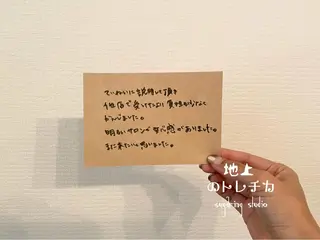 ていねいに説明して頂き
他店で受けたより負担が少なくて
明るいサロンで安心感がありました。
また来たいと思いました。
地上
のトレチカ
sugaring studio